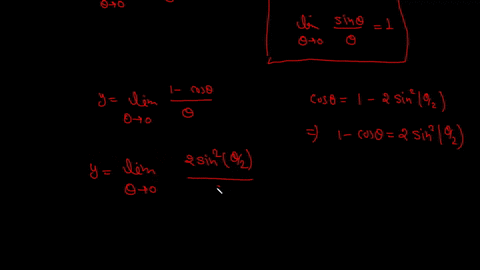 θ→0
lim sinθ/θ = 1
θ→0
y = lim (1 - cosθ)/θ
θ→0
cosθ = 1 - 2 sin²(θ/2)
⇒ 1 - cosθ = 2 sin²(θ/2)
y = lim 2 sin²(θ/2)
θ→0